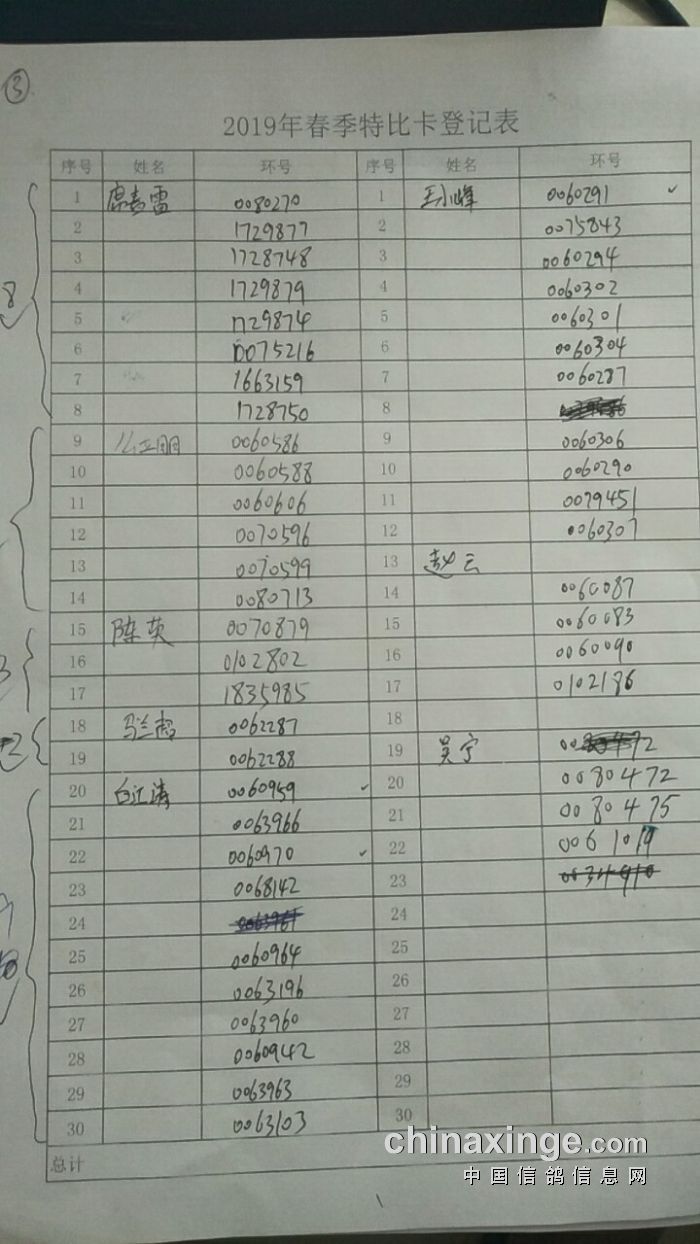 ③
2019年春季特比卡登记表
序号 姓名 环号 序号 姓名 环号
1 席春雷 0080270 1 王小峰 0060291 ✓
2 1729877 2 0075843
3 1728748 3 0060294
4 1729879 4 0060302
5 1729874 5 0060301
6 0075216 6 0060304
7 1663159 7 0060287
8 1728750 8
9 公正朋 0060586 9 0060306
10 0060588 10 0060290
11 0060606 11 0079451
12 0070596 12 0060307
13 0070599 13 赵云
14 0080713 14 0060087
15 陈英 0070879 15 0060083
16 0102802 16 0060090
17 1835985 17 0102186
18 马兰超 0062287 18
19 0062288 19 吴宁 00 72
20 白江涛 0060959 ✓ 20 0080472
21 0063966 21 0080475
22 0060970 ✓ 22 0061019
23 0068142 23
24 24
25 0060964 25
26 0063196 26
27 0063960 27
28 0060942 28
29 0063963 29
30 0063103 30
总计
8
3
2
chinaxinge.com
中国信鸽信息网